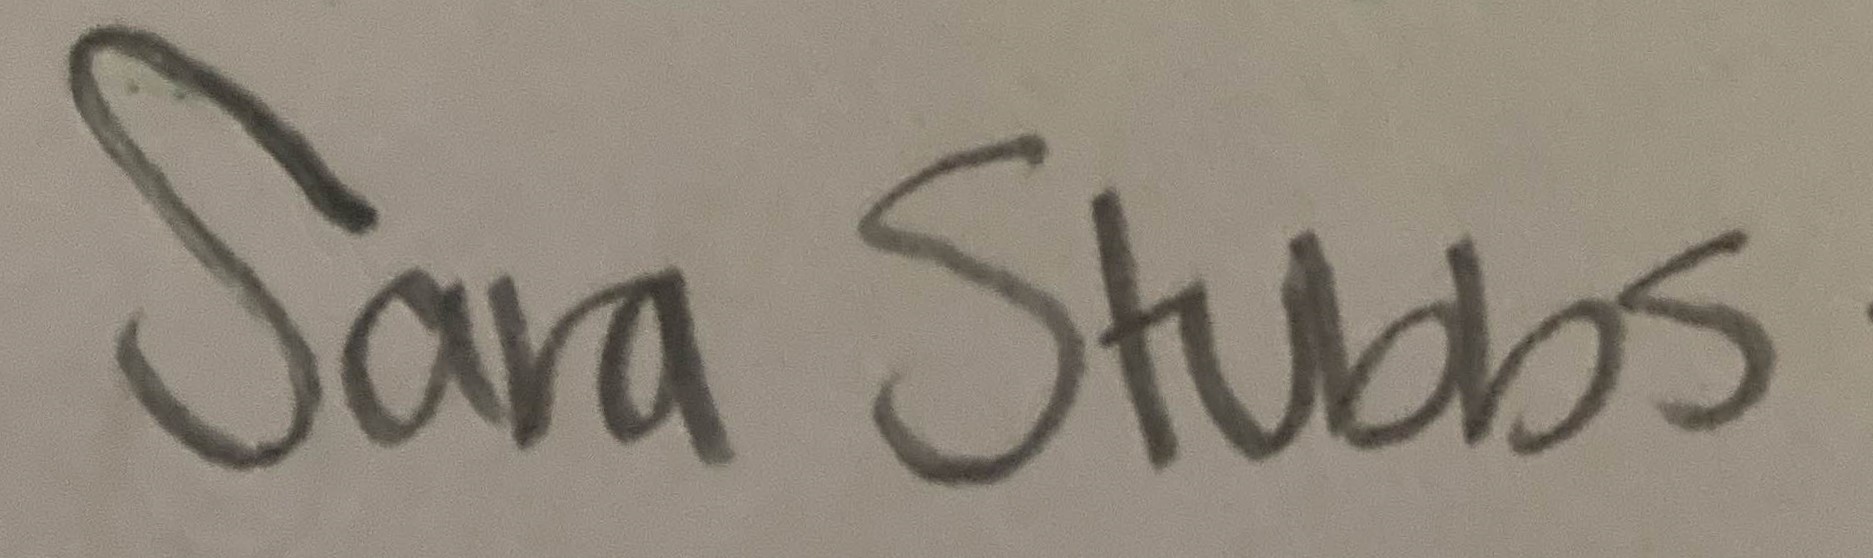 Sara Stubbs